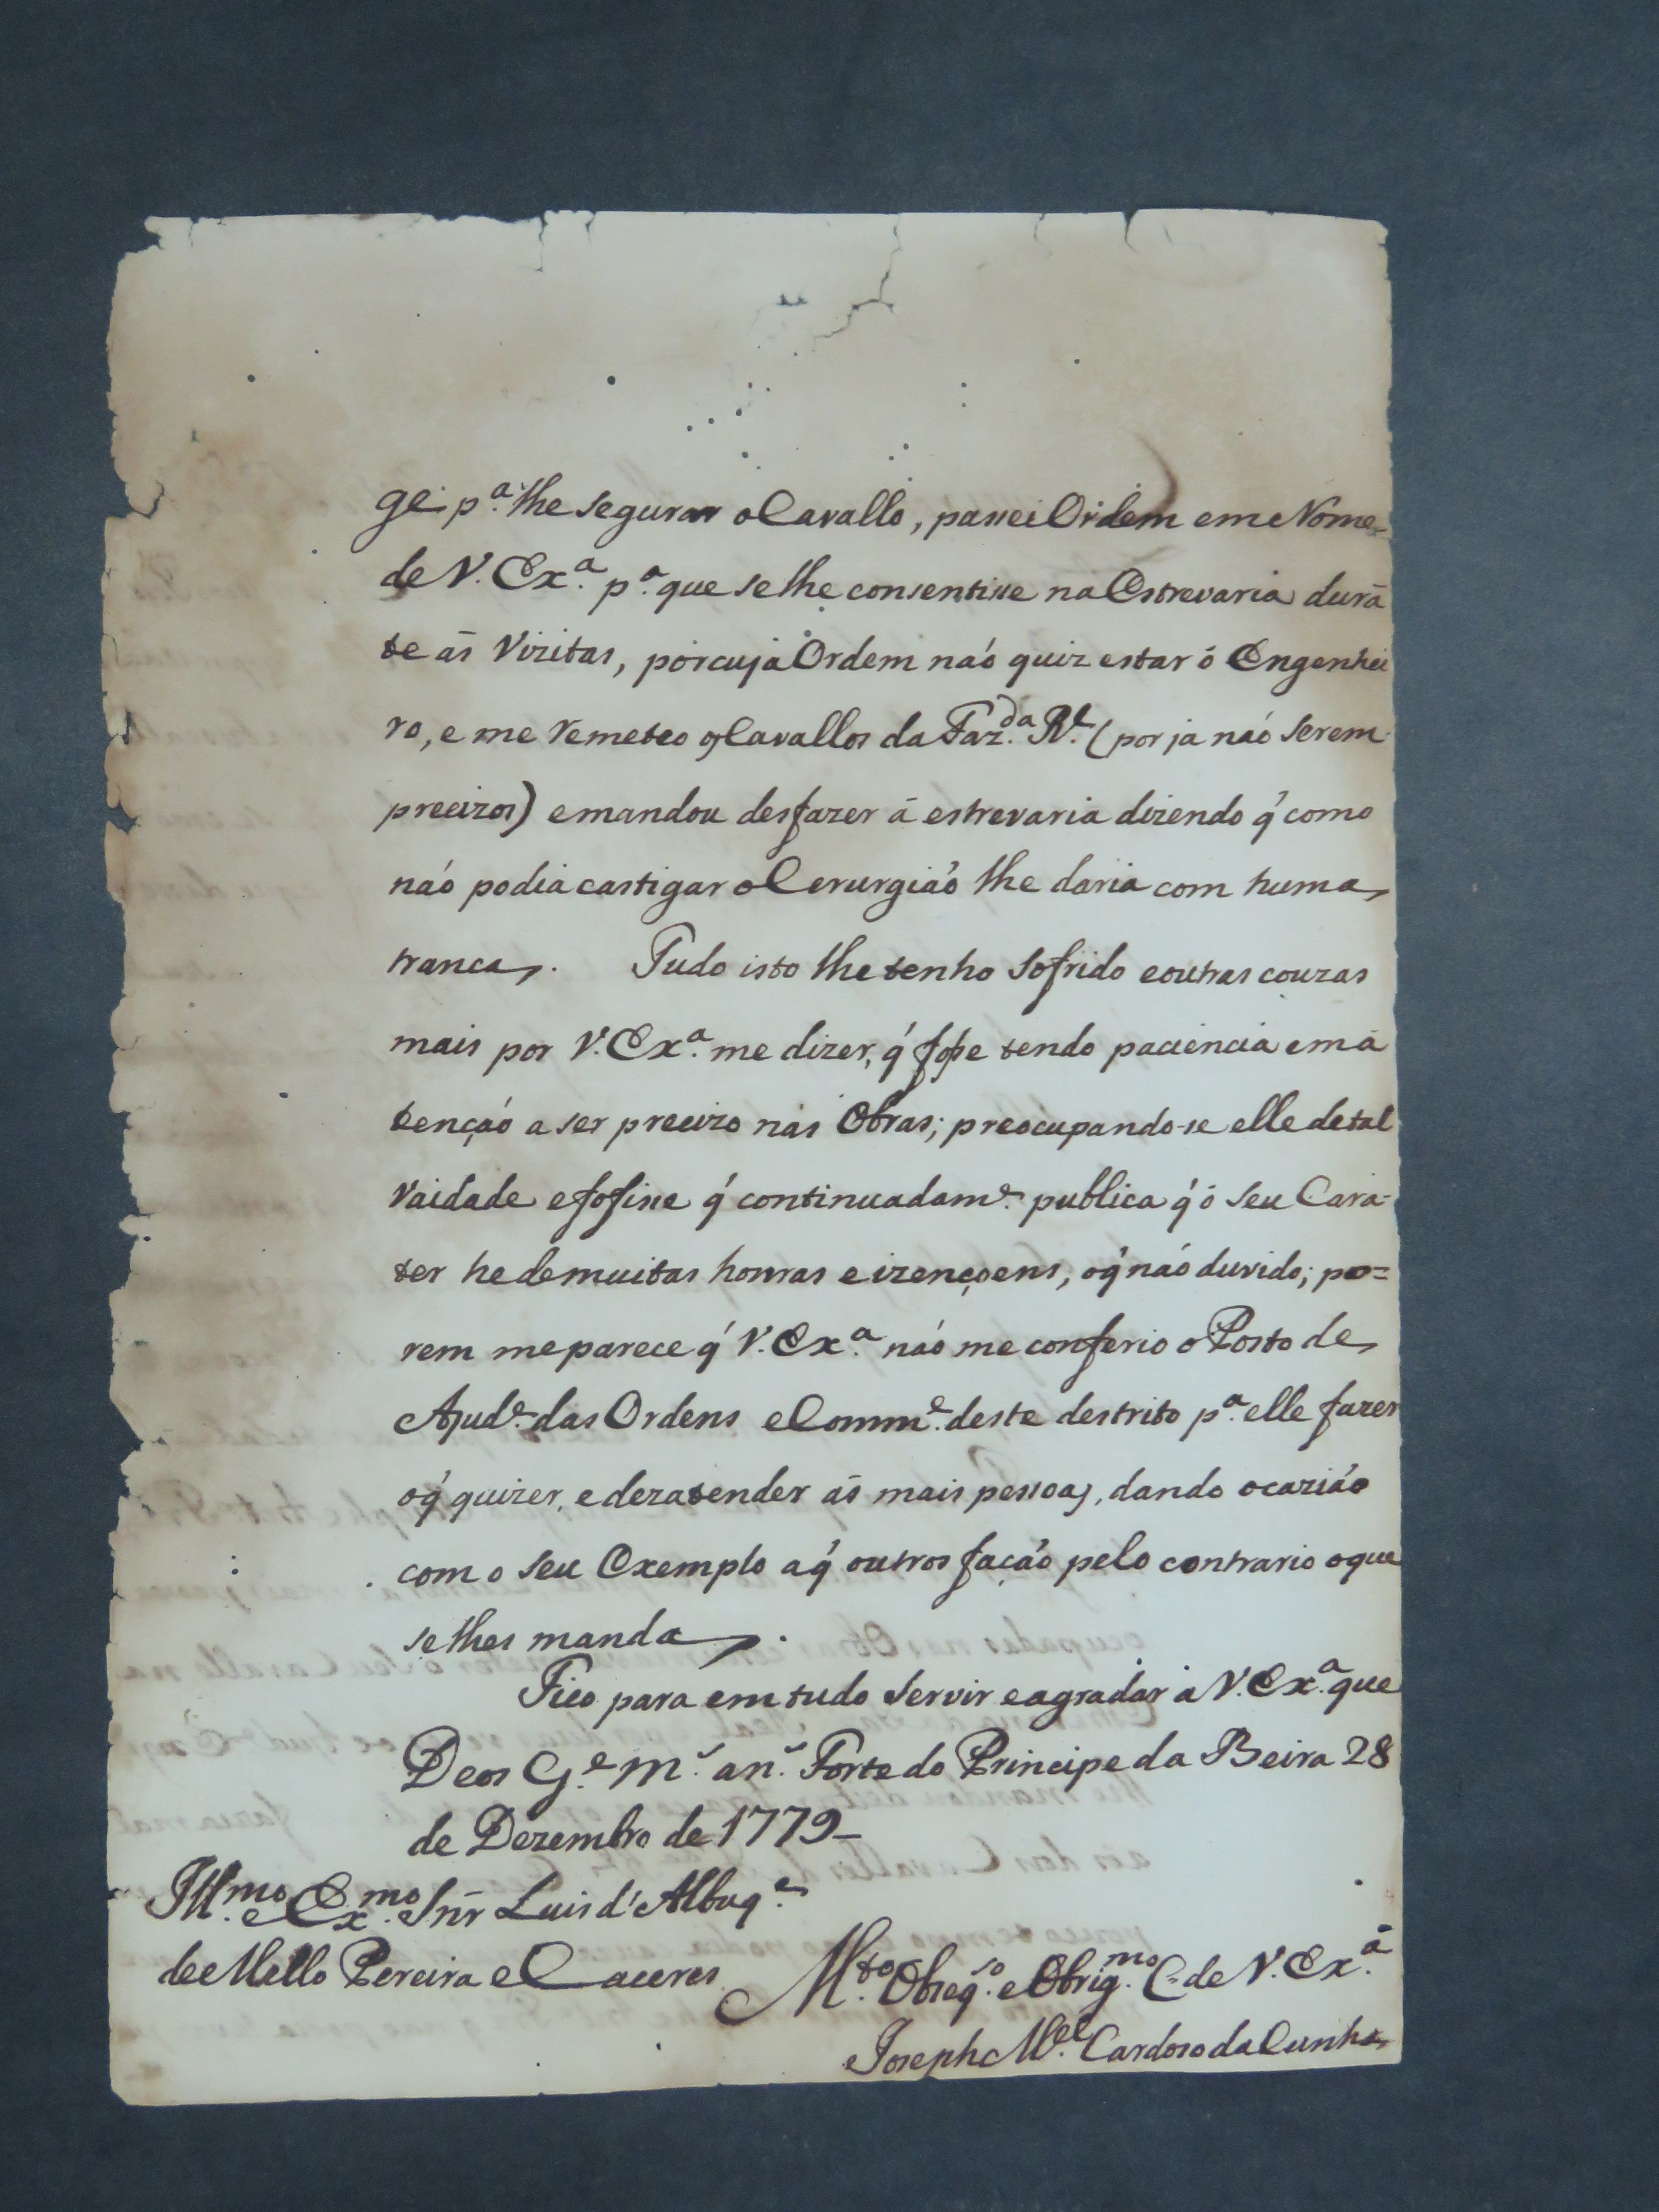 ge p.ª lhe segurar o Cavallo, passei Ordem em o Nome
de V. Ex.ª p.ª que se lhe consentisse na Estrevaria durā
te ās Vizitas, por cuja Ordem naó quiz estar ó Engenhei
ro, e me remeteo os Cavallos da Faz.da R.l (por ja naó serem
precizos) e mandou desfazer ā estrevaria dizendo q́ como
naó podia castigar o Cerurgiaó lhe daria com huma
tranca. Tudo isto lhe tenho sofrido e outras couzas
mais por V. Ex.ª me dizer, q́ fosse tendo paciencia em a
tençaó a ser precizo nas Obras; preocupando-se elle de tal
vaidade e fofisse q́ continuadam.e publica q́ ó seu Cara-
ter he de muitas honras e izençoens, o q́ naó duvido; po=
rem me parece q́ V. Ex.ª naó me conferio o Posto de
Ajud.e das Ordens e Comm.e deste destrito p.ª elle fazer
o q́ quizer, e dezatender ás mais pessoas, dando ocaziaó
com o seu Exemplo a q́ outros façaó pelo contrario o que
se lhes manda.
Fico para em tudo servir e agradar a V. Ex.ª que
Deos G.e m.s an.s Forte do Principe da Beira 28
de Dezembro de 1779_
Ill.mo e Ex.mo Sñr Luis d'Albuq.e
de Mello Pereira e Caceres
M.to Obseq.so e Obrig.mo C. de V. Ex.ª
Joseph M.el Cardoso da Cunha